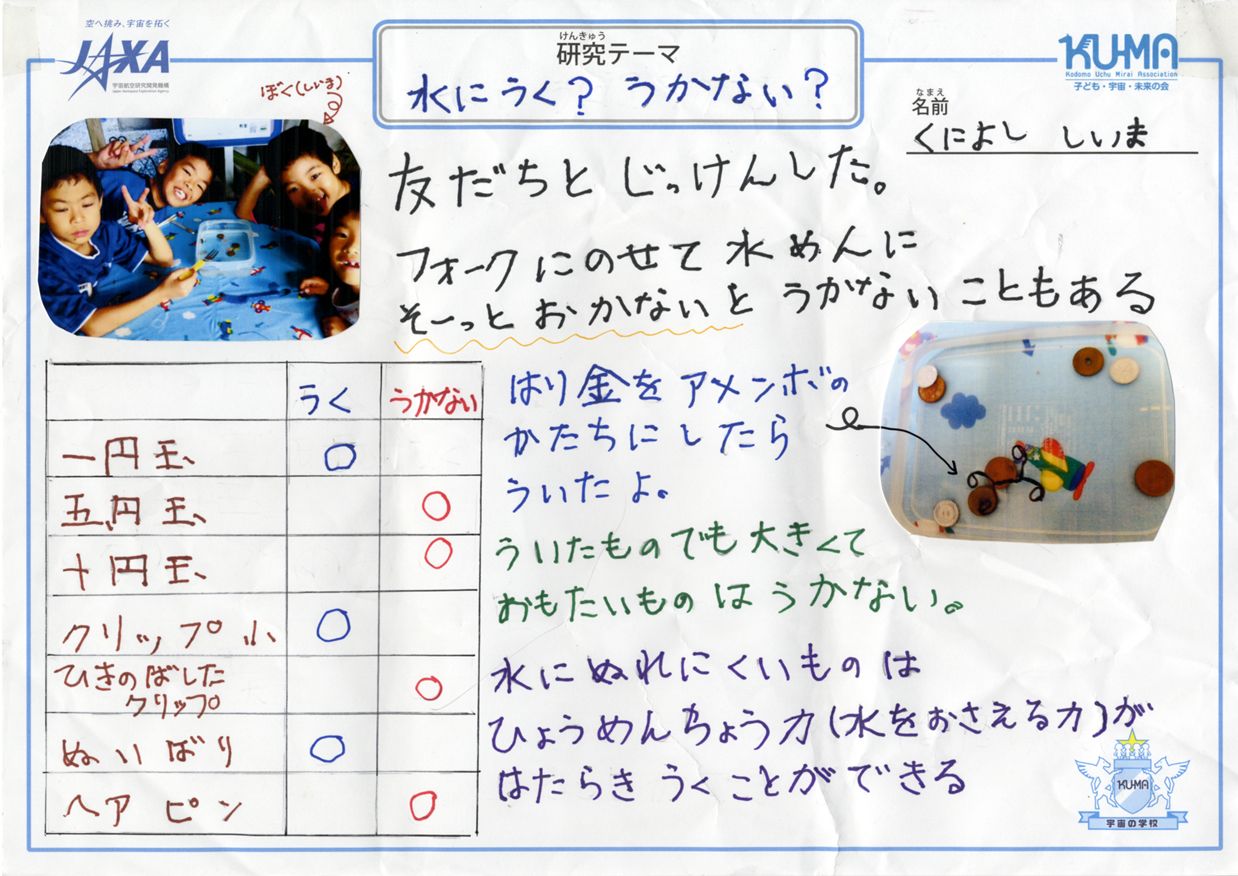 空へ挑み、宇宙を拓く
JAXA
宇宙航空研究開発機構
Japan Aerospace Exploration Agency
けんきゅう
研究テーマ
水にうく? うかない?
KU-MA
Kodomo Uchu Mirai Association
子ども・宇宙・未来の会
なまえ
名前
くによし しいま
ぼく(しいま)
友だちとじっけんした。
フォークにのせて水めんに
そーっとおかないとうかないこともある
うく うかない
一円玉 ○
五円玉 ○
十円玉 ○
クリップ小 ○
ひきのばした
クリップ ○
ぬいばり ○
ヘアピン ○
はり金をアメンボの
かたちにしたら
ういたよ。
ういたものでも大きくて
おもたいものはうかない。
水にぬれにくいものは
ひょうめんちょう力(水をおさえる力)が
はたらきうくことができる
KU-MA
宇宙の学校